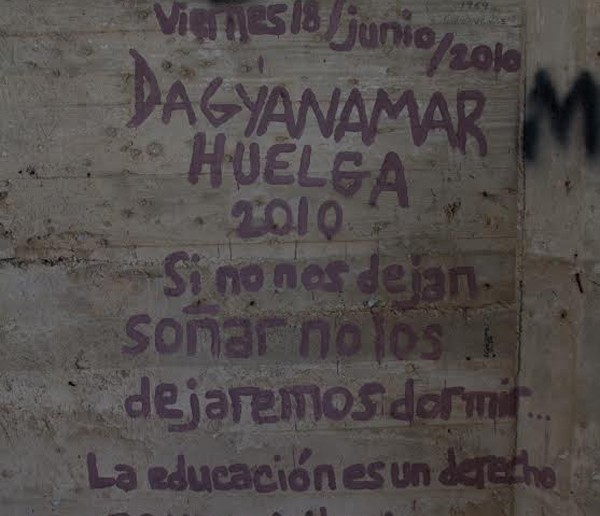 Viernes 18/junio/2010
DAGYANAMAR
HUELGA
2010
Si no nos dejan
soñar no los
dejaremos dormir...
La educación es un derecho
M